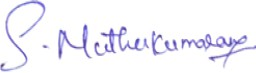 S. Muthukumaran